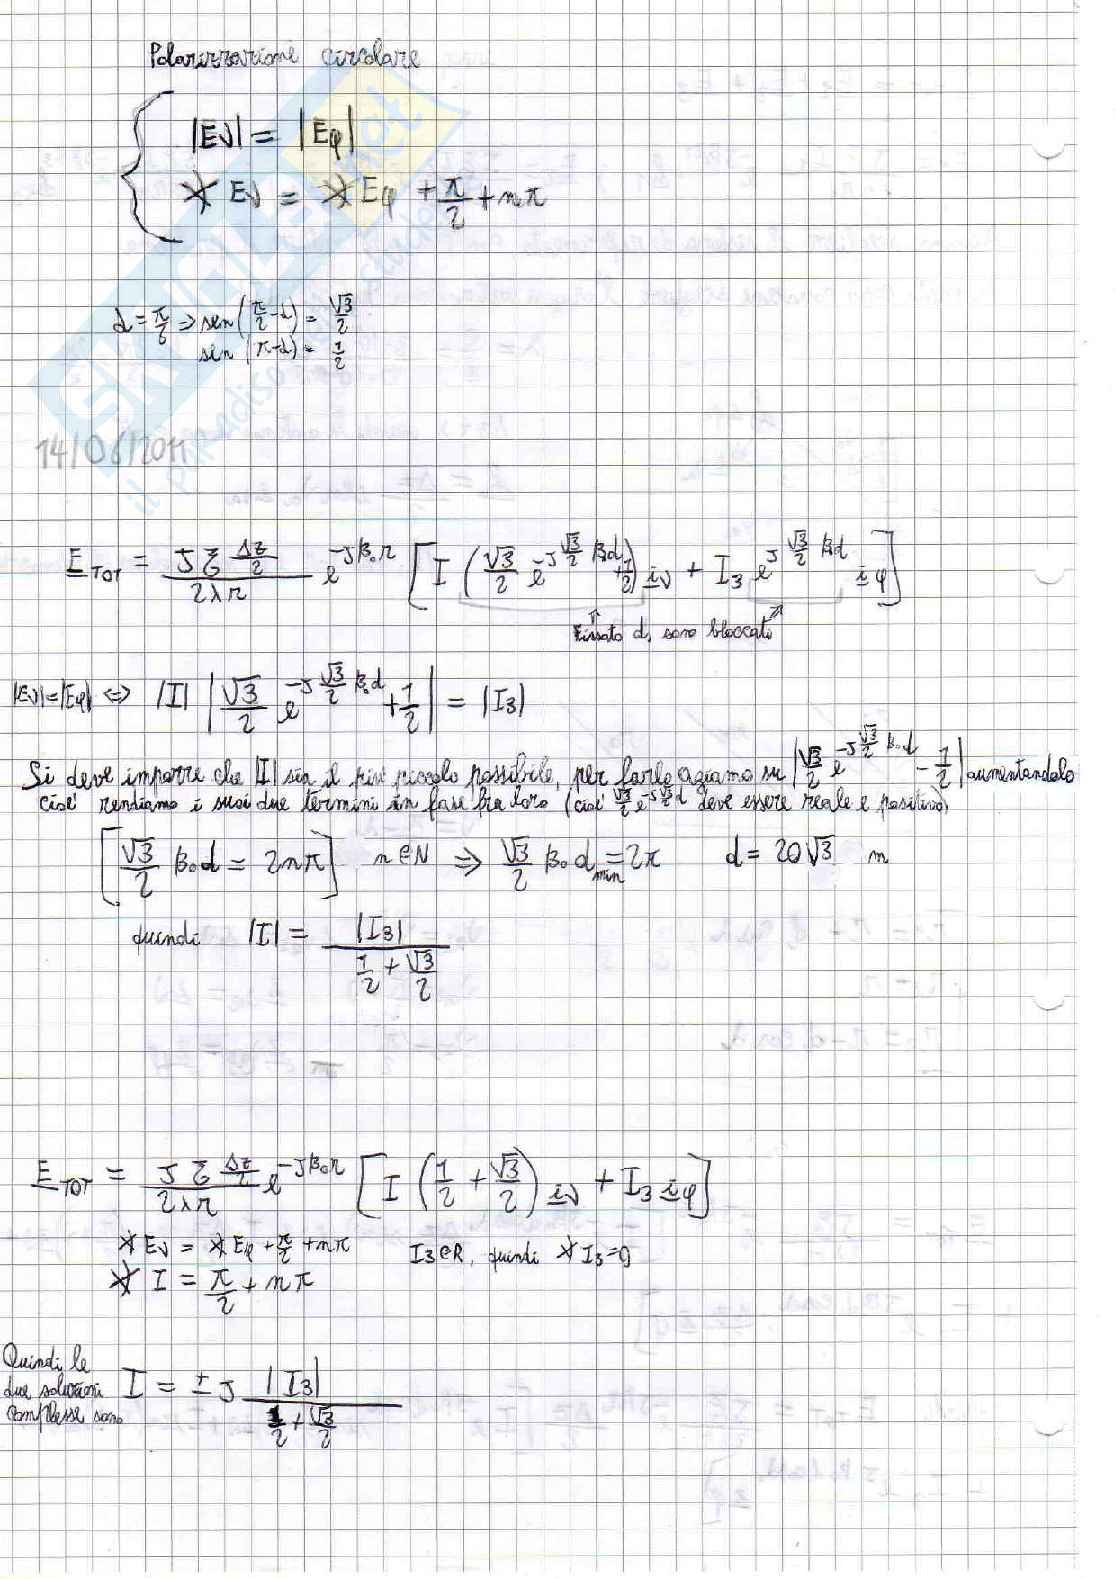 Polarizzazione circolare
|Eϑ| = |Eφ|
∡ Eϑ = ∡ Eφ + π/2 + nπ
α = π/6 ⇒ sen(π/2 - α) = √3/2
sen(π-α) = 1/2
14/06/2011
E_TOT = (J ξ Δz/2)/(2λr) e^(-Jβ₀r) [ I ( √3/2 e^(-J √3/2 β₀d) + 1/2 ) i_ϑ + I₃ e^(J √3/2 β₀d) i_φ ]
Fissato d, sono bloccati
|Eϑ|=|Eφ| ⇔ |I| | √3/2 e^(-J √3/2 β₀d) + 1/2 | = |I₃|
Si deve imporre che |I| sia il più piccolo possibile, per farlo agiamo su | √3/2 e^(-J √3/2 β₀d) - 1/2 | aumentandolo
cioè rendiamo i suoi due termini in fase fra loro (cioè √3/2 e^(-J √3/2 d) deve essere reale e positivo)
[ √3/2 β₀d = 2nπ ] n∈N ⇒ √3/2 β₀ d_min = 2π d = 20√3 m
quindi |I| = |I₃| / (1/2 + √3/2)
E_TOT = (J ξ Δz/2)/(2λr) e^(-Jβ₀r) [ I ( 1/2 + √3/2 ) i_ϑ + I₃ i_φ ]
∡ Eϑ = ∡ Eφ + π/2 + nπ I₃∈R, quindi ∡ I₃=0
∡ I = π/2 + nπ
Quindi le
due soluzioni
complesse sono
I = ± J |I₃| / (1/2 + √3/2)